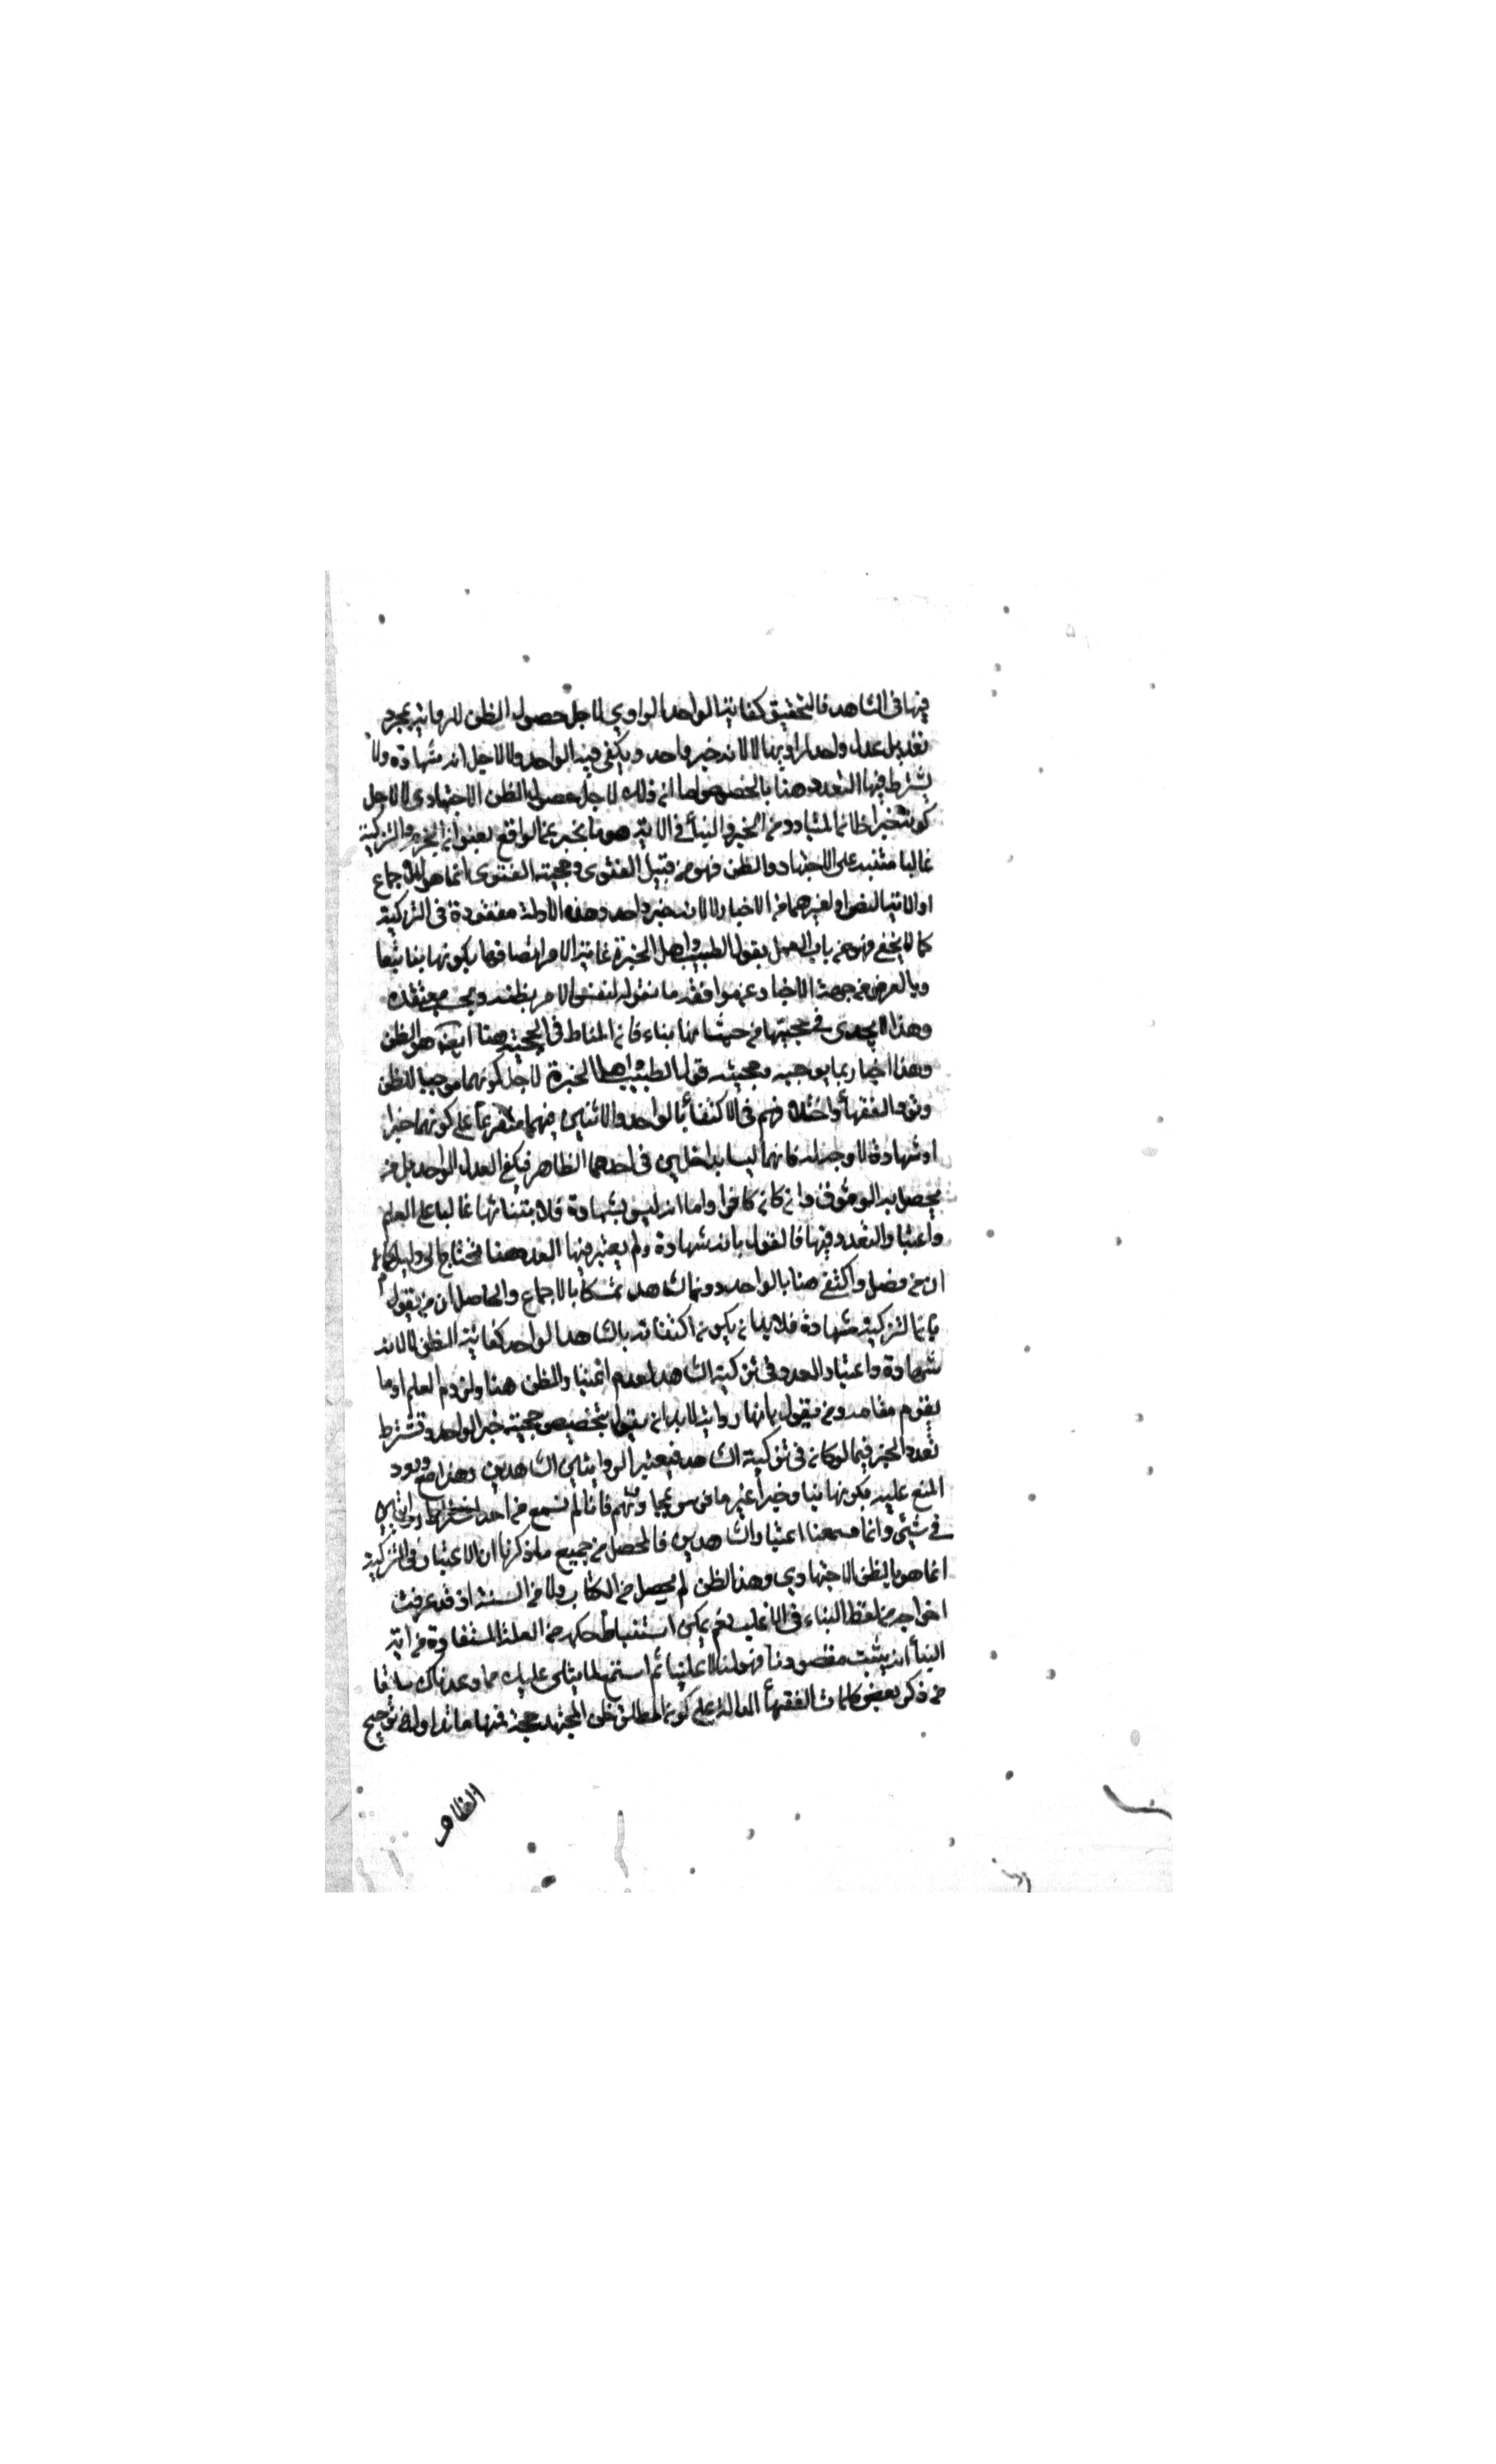 فيها في الشاهد فالتحقيق كفاية الواحد الراوي لاجل حصول الظن للرواية بمجرد
تعديل عدل واحد لراويها لا لانه خبر واحد ويكفي فيه الواحد ولا لاجل انه شهادة ولا
يشترط فيها التعدد هنا بالخصوص لما ان ذلك لاجل حصول الظن الاجتهادي لا لاجل
كونه خبرا فان المتبادر من الخبر والنبأ في الاية هو ما يخبر عن الواقع بعنوان الجزم والتزكية
غالبا مبتنية على الاجتهاد والظن فهو من قبيل الفتوى وحجية الفتوى انما هو للاجماع
او لاية النفر او لغيرهما من الاخبار لا لانه خبر واحد وهذه الادلة مفقودة في التزكية
كما لا يخفى فهو من باب العمل بقول الطبيب واهل الخبرة غاية الامر اتصافها بكونها بناء تبعا
وبالعرض من جهة الاخبار عن موافقة ما نقوله لنفس الامر بظنه وبحسب معتقده
وهذا لا يجدي في حجيتها من حيث انها بناء فان المناط في الحجية هنا ايضا هو الظن
وهذا اخبار بما يوجبه وحجية قول الطبيب واهل الخبرة لاجل كونهما موجبا للظن
ونزاع الفقهأ واختلافهم في الاكتفأ بالواحد والاثنين فيهما متفرعا على كونهما خبرا
او شهادة لا وجه له فانهما ليسا بداخلين في احدهما الظاهر فيكفي العدل الواحد بل من
يحصل به الوثوق وان كان كافرا واما انه ليس بشهادة فلابتنائها غالبا على العلم
واعتبار التعدد فيها فالقول بانه شهادة ولم يعتبر فيها العدد هنا محتاج الى دليل كما
ان من فصل واكتفى هنا بالواحد دون الشاهد تمسكا بالاجماع والحاصل ان من يقول
بان التزكية شهادة فلا بد ان يكون اكتفائه بالشاهد الواحد كفاية الظن لا لانه
شهادة واعتبار العدد في تزكية الشاهد لعدم اعتبار الظن هنا ولزوم العلم او ما
يقوم مقامه ومن يقول بانها رواية لا بد ان يقول بتخصيص حجية خبر الواحد وتشترط
تعدد الخبر فيما لو كان في تزكية الشاهد فيعتبر الروايتين الشاهدين وهذا مع ورود
المنع عليه بكونها نبا وخبرا غير مانوس فانا لم نسمع من احد اشتراط روايتين
في شيئ وانما سمعنا اعتبار الشاهدين فالمحصل من جميع ما ذكرنا ان الاعتبار في التزكية
انما هو بالظن الاجتهادي وهذا الظن لم يحصل من الكتاب ولا من السنة اذ قد عرفت
اخراجه من لفظ النباء في الاغلب نعم يمكن استنباط حكمه من العلة المستفادة من اية
النبأ اذ يثبت مقصودنا فهو لنا لا علينا ثم استمع لما يتلى عليك مما وعدناك سابقا
من ذكر بعض كلمات الفقهأ الدالة على كون مطلق ظن المجتهد حجة فمنها ما تداوله ترجيح
الظاهر